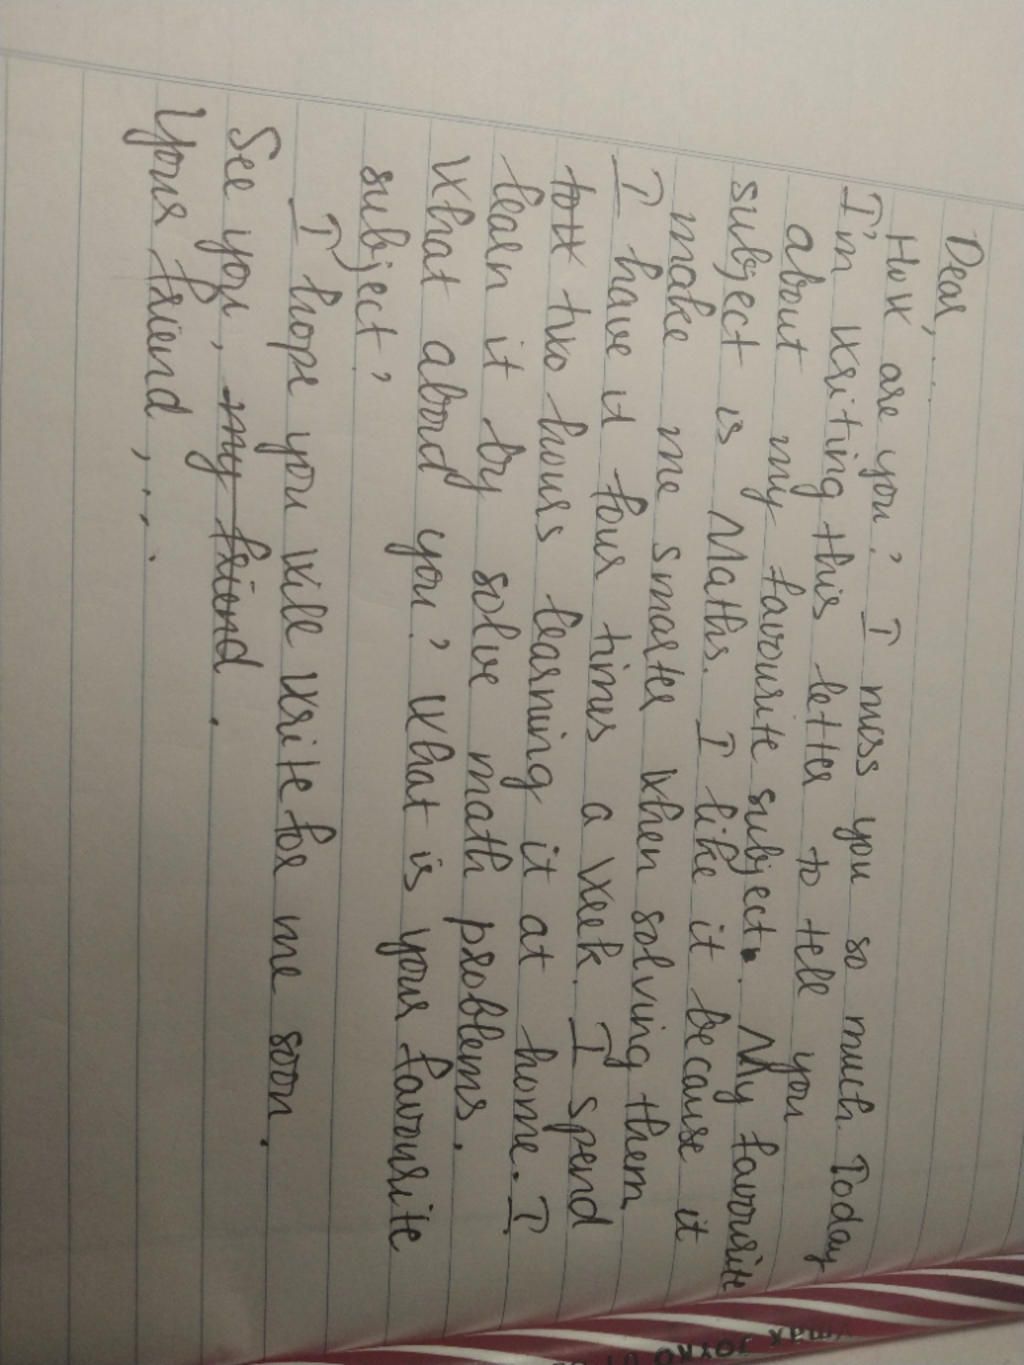 Dear, ...
How are you? I miss you so much Today
I'm writing this letter to tell you
about my favourite subject. My favourite
subject is Maths. I like it because it
make me smarter when solving them
I have it four times a week. I spend
two hours learning it at home. I
lear it by solve math problems.
What aboud you? What is your favourite
subject?
I hope you will write for me soon.
See you, my friend.
Your friend, ...